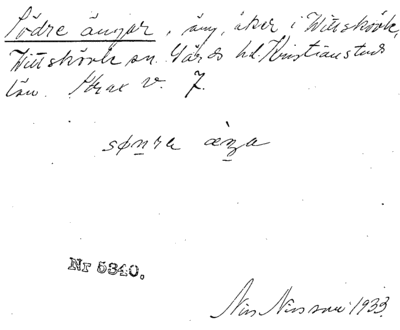 Södre ängar, äng, åker i Vittskövle,
Vittskövle sn. Gärds hd. Kristianstads
län. Skrae v. 7.
sønra æŋa
Nr 5340.
Nils Nilsson 1933.